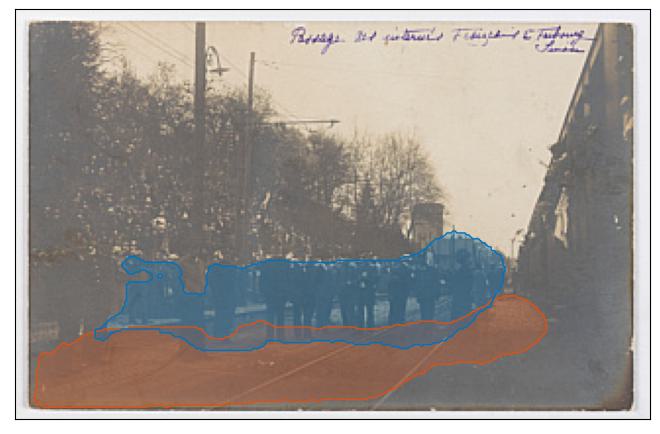 Passage des internés Français à Fribourg
Suisse